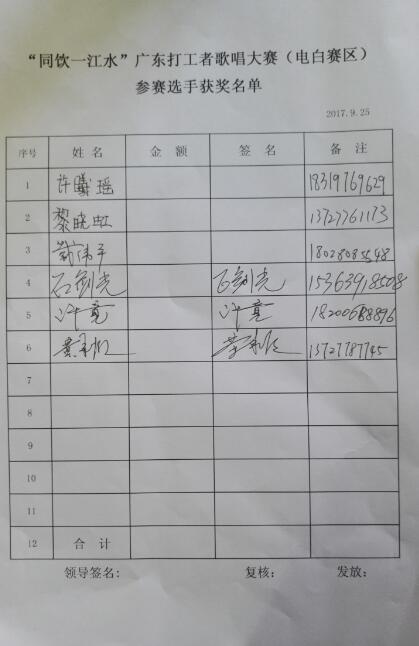 “同饮一江水”广东打工者歌唱大赛（电白赛区）
参赛选手获奖名单
2017.9.25
序号 姓名 金额 签名 备注
1 许曦瑶 18319769629
2 黎晓虹 13727761173
3 18028085548
4 石剑光 石剑光 15363918508
5 许亮 许亮 18200688896
6 黄 13727787745
7
8
9
10
11
12 合计
领导签名: 复核: 发放: